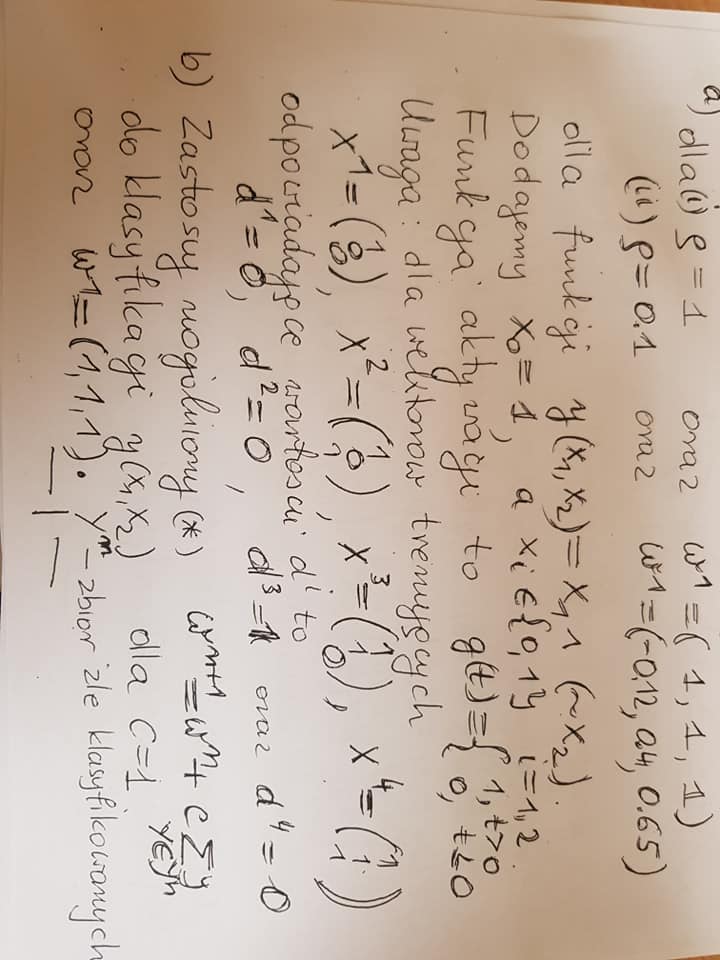 a) dla (i) ρ = 1 oraz w¹ = (1, 1, 1)
(ii) ρ = 0.1 oraz w¹ = (-0.12, 0.4, 0.65)
dla funkcji y(x₁, x₂) = x₁ ∧ (~x₂).
Dodajemy x₀ = 1, a xᵢ ∈ {0, 1} i = 1, 2.
Funkcja aktywacji to g(t) = { 1, t>0
0, t≤0
Uwaga: dla wektorów trenujących
x¹ = (1 0 0), x² = (1 0 1), x³ = (1 1 0), x⁴ = (1 1 1)
odpowiadające wartości dⁱ to
d¹ = 0, d² = 0, d³ = 1 oraz d⁴ = 0
b) Zastosuj uogólniony (*) wⁿ⁺¹ = wⁿ + c Σ y
y∈Yⁿ
do klasyfikacji y(x₁, x₂) dla C = 1
oraz w¹ = (1, 1, 1). Yⁿ - zbiór źle klasyfikowanych
— | —